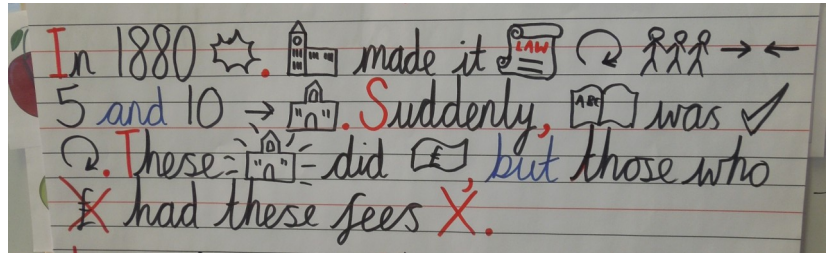 In 1880 . made it LAW
5 and 10 → . Suddenly, ABC was ✓
. These did £, but those who
£ had these fees X.